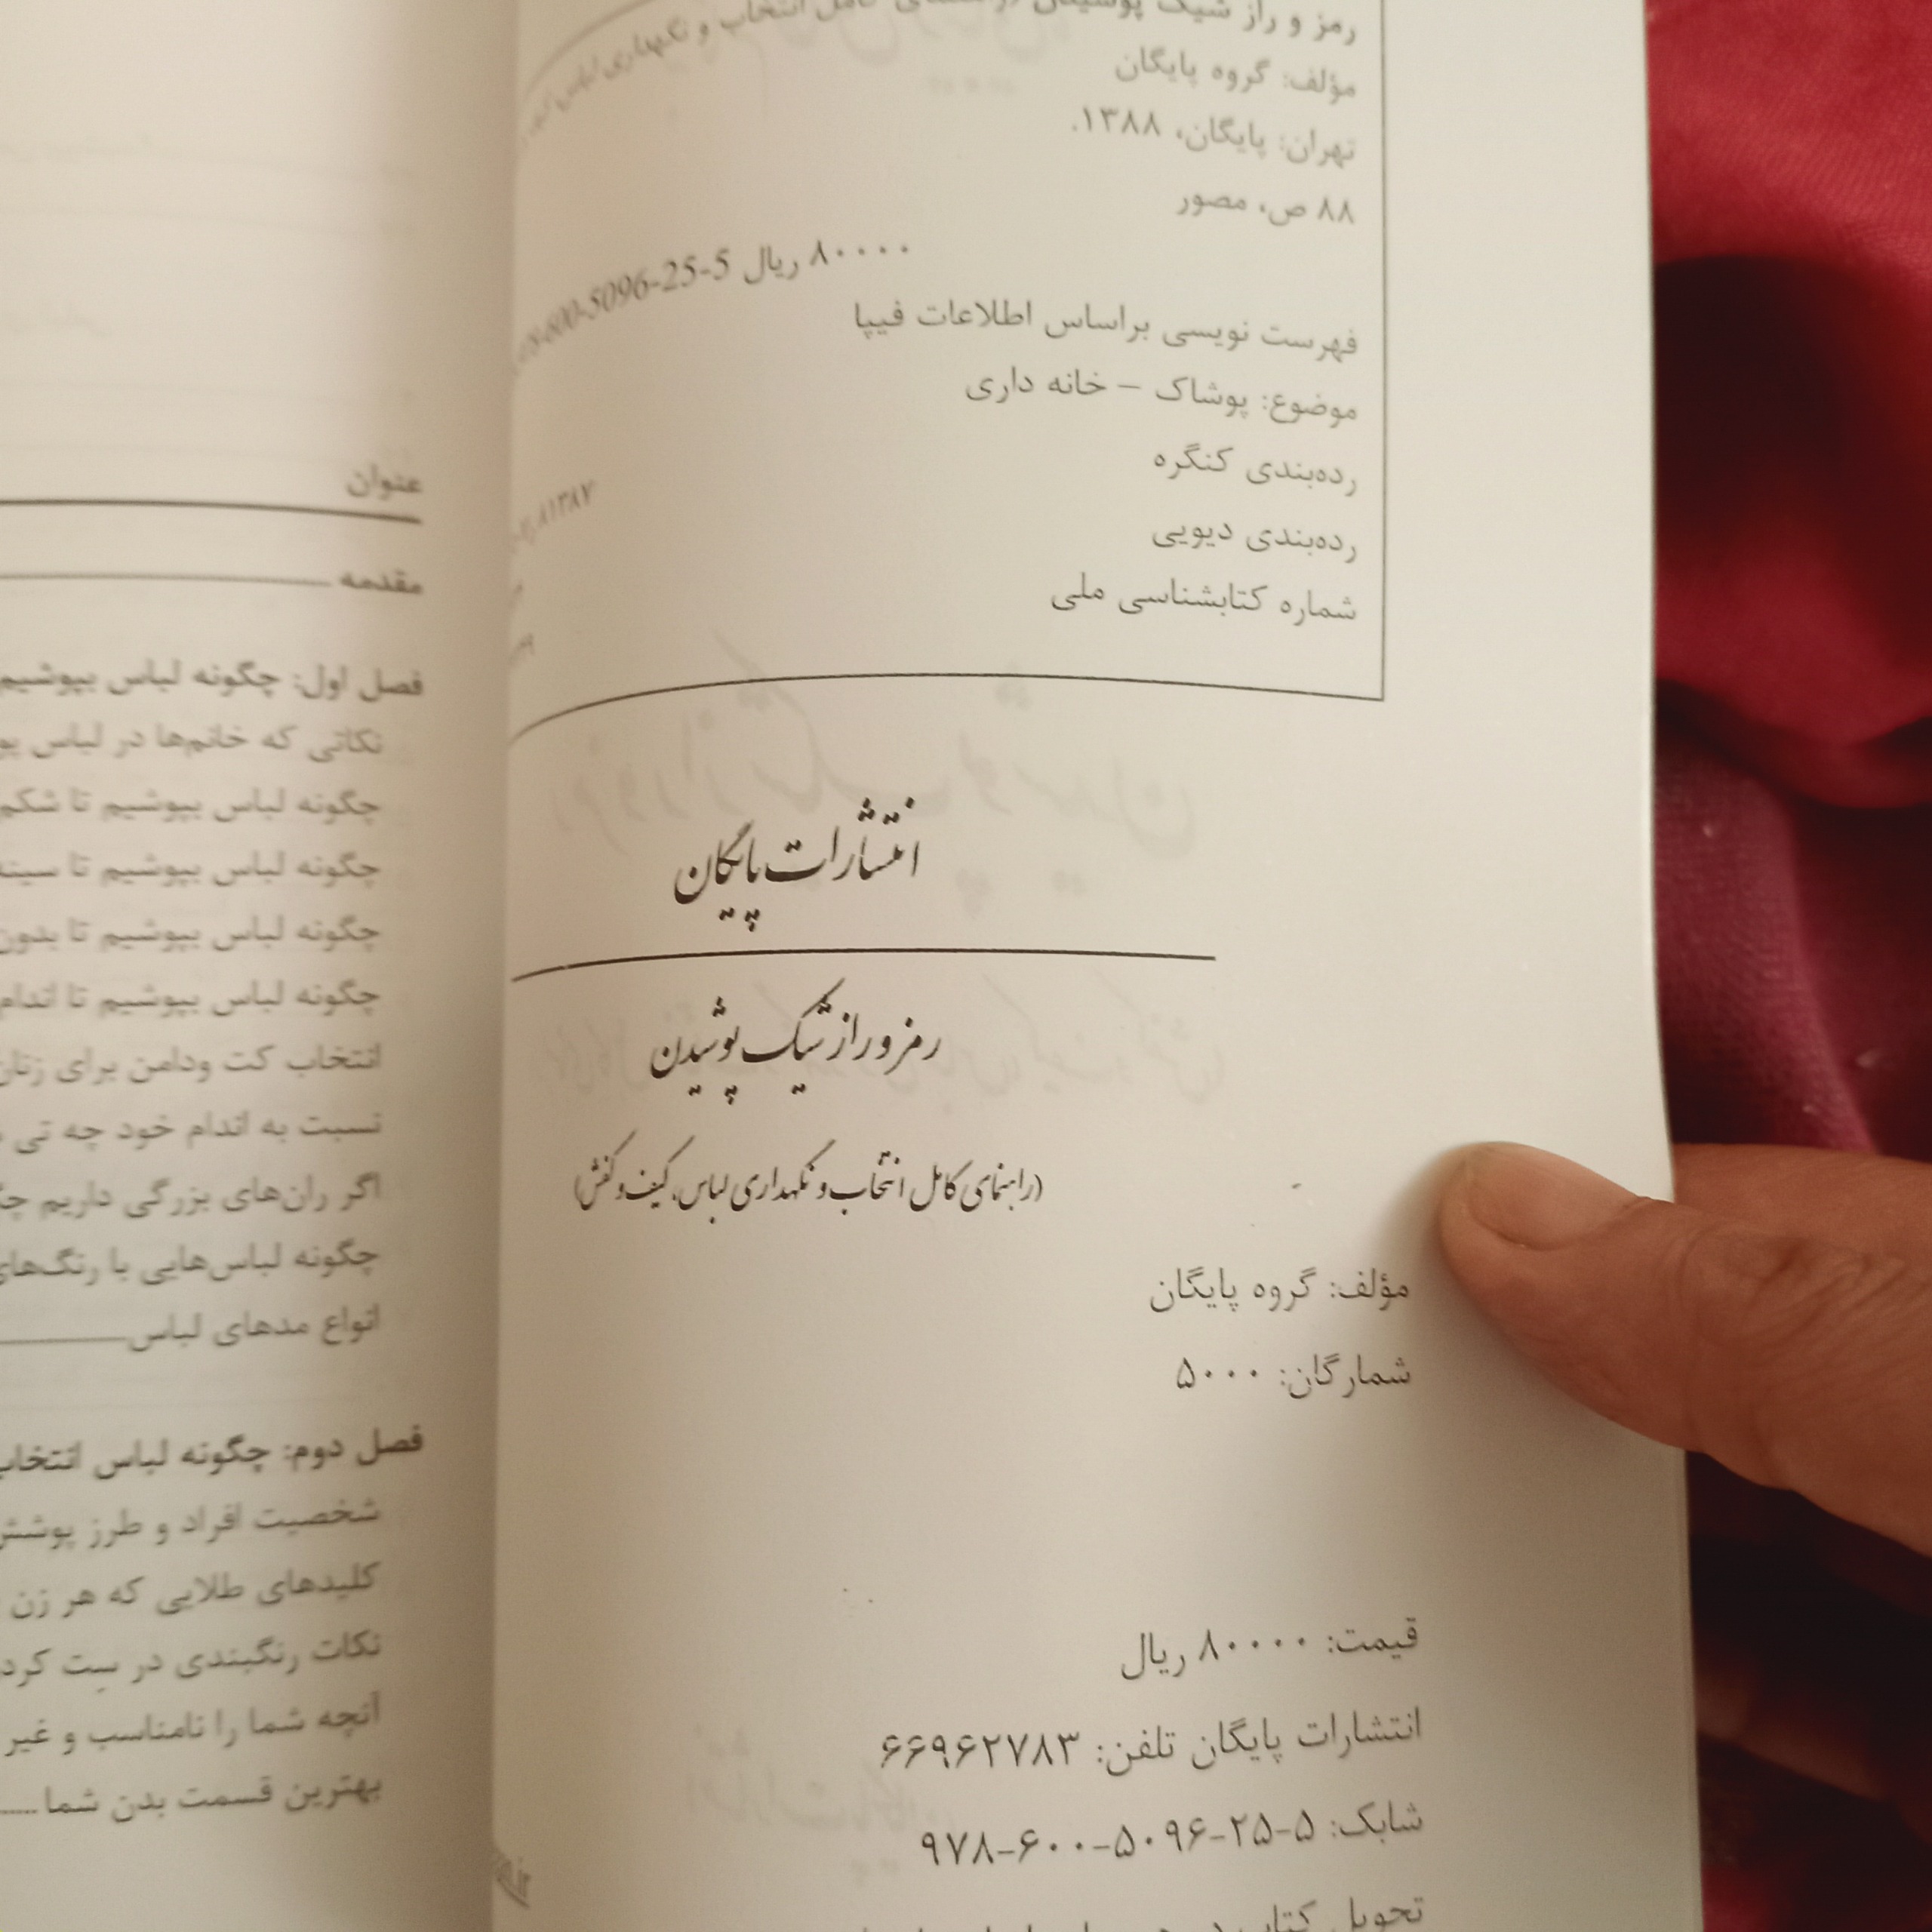 رمز و راز شیک پوشیدن (راهنمای کامل انتخاب و نگهداری لباس
مؤلف: گروه پایگان
تهران: پایگان، ۱۳۸۸.
۸۸ ص، مصور
۸۰۰۰۰ ریال 5-25-5096-600
فهرست نویسی براساس اطلاعات فیپا
موضوع: پوشاک – خانه داری
رده‌بندی کنگره
رده‌بندی دیویی
شماره کتابشناسی ملی
انتشارات پایگان
رمز و راز شیک پوشیدن
(راهنمای کامل انتخاب و نگهداری لباس، کیف و کفش)
مؤلف: گروه پایگان
شمارگان: ۵۰۰۰
قیمت: ۸۰۰۰۰ ریال
انتشارات پایگان تلفن: ۶۶۹۶۲۷۸۳
شابک: ۵-۲۵-۵۰۹۶-۶۰۰-۹۷۸
تحویل کتاب در
عنوان
مقدمه
فصل اول: چگونه لباس بپوشیم
نکاتی که خانم‌ها در لباس
چگونه لباس بپوشیم تا شکم
چگونه لباس بپوشیم تا سینه
چگونه لباس بپوشیم تا بدون
چگونه لباس بپوشیم تا اندام
انتخاب کت ودامن برای زنان
نسبت به اندام خود چه تی
اگر ران‌های بزرگی داریم
چگونه لباس‌هایی با رنگ‌های
انواع مدهای لباس
فصل دوم: چگونه لباس انتخاب
شخصیت افراد و طرز پوشش
کلیدهای طلایی که هر زن
نکات رنگبندی در ست کرد
آنچه شما را نامناسب و غیر
بهترین قسمت بدن شما